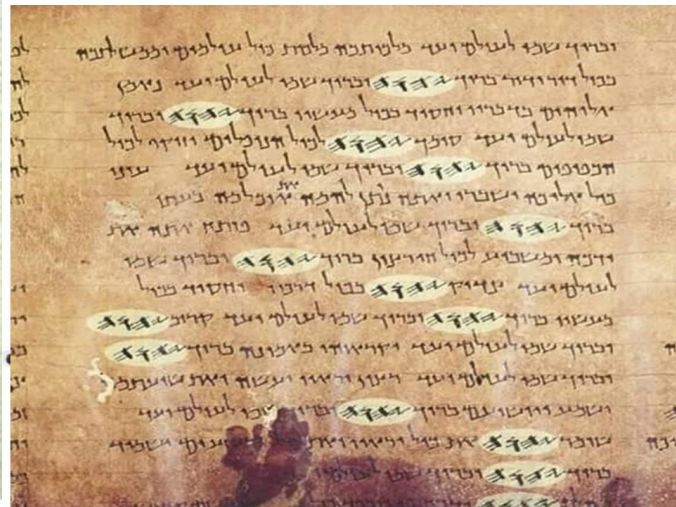 וברוך שמו לעולם ועד מלכותכה מלכות כול עולמים וממשלתכה
בכול דור ודור ברוך 𐤉𐤄𐤅𐤄 וברוך שמו לעולם ועד נאמן
אלוהים בדבריו וחסיד בכול מעשיו ברוך 𐤉𐤄𐤅𐤄 וברוך
שמו לעולם ועד סומך 𐤉𐤄𐤅𐤄 לכול הנופלים וזוקף לכול
הכפופים ברוך 𐤉𐤄𐤅𐤄 וברוך שמו לעולם ועד עיני
כול אליכה ישברו ואתה נותן להמה את אוכלמה בעתו
ברוך 𐤉𐤄𐤅𐤄 וברוך שמו לעולם ועד פותח אתה את
ידכה ומשביע לכול חי רצון ברוך 𐤉𐤄𐤅𐤄 וברוך שמו
לעולם ועד צדיק 𐤉𐤄𐤅𐤄 בכול דרכיו וחסיד בכול
מעשיו ברוך 𐤉𐤄𐤅𐤄 וברוך שמו לעולם ועד קרוב 𐤉𐤄𐤅𐤄
וברוך שמו לעולם ועד יקראוהו באמונה ברוך 𐤉𐤄𐤅𐤄
וברוך שמו לעולם ועד רצון יראיו יעשה ואת שועתמה
ישמע ויושיעם ברוך 𐤉𐤄𐤅𐤄 וברוך שמו לעולם ועד
שומר 𐤉𐤄𐤅𐤄 את כול יראיו ואת רשעים ישמיד
ברוך 𐤉𐤄𐤅𐤄 וברוך שמו לעולם